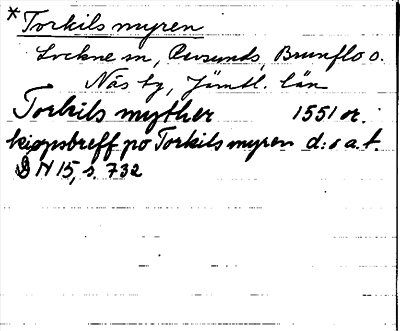 * Torkils myren
Lockne sn, Revsunds, Brunflo o.
Näs tg, Jämtl. län
Torkils myther 1551 or.
kiøpsbreff po Torkils myren d:o a.t.
DN 15, s. 732